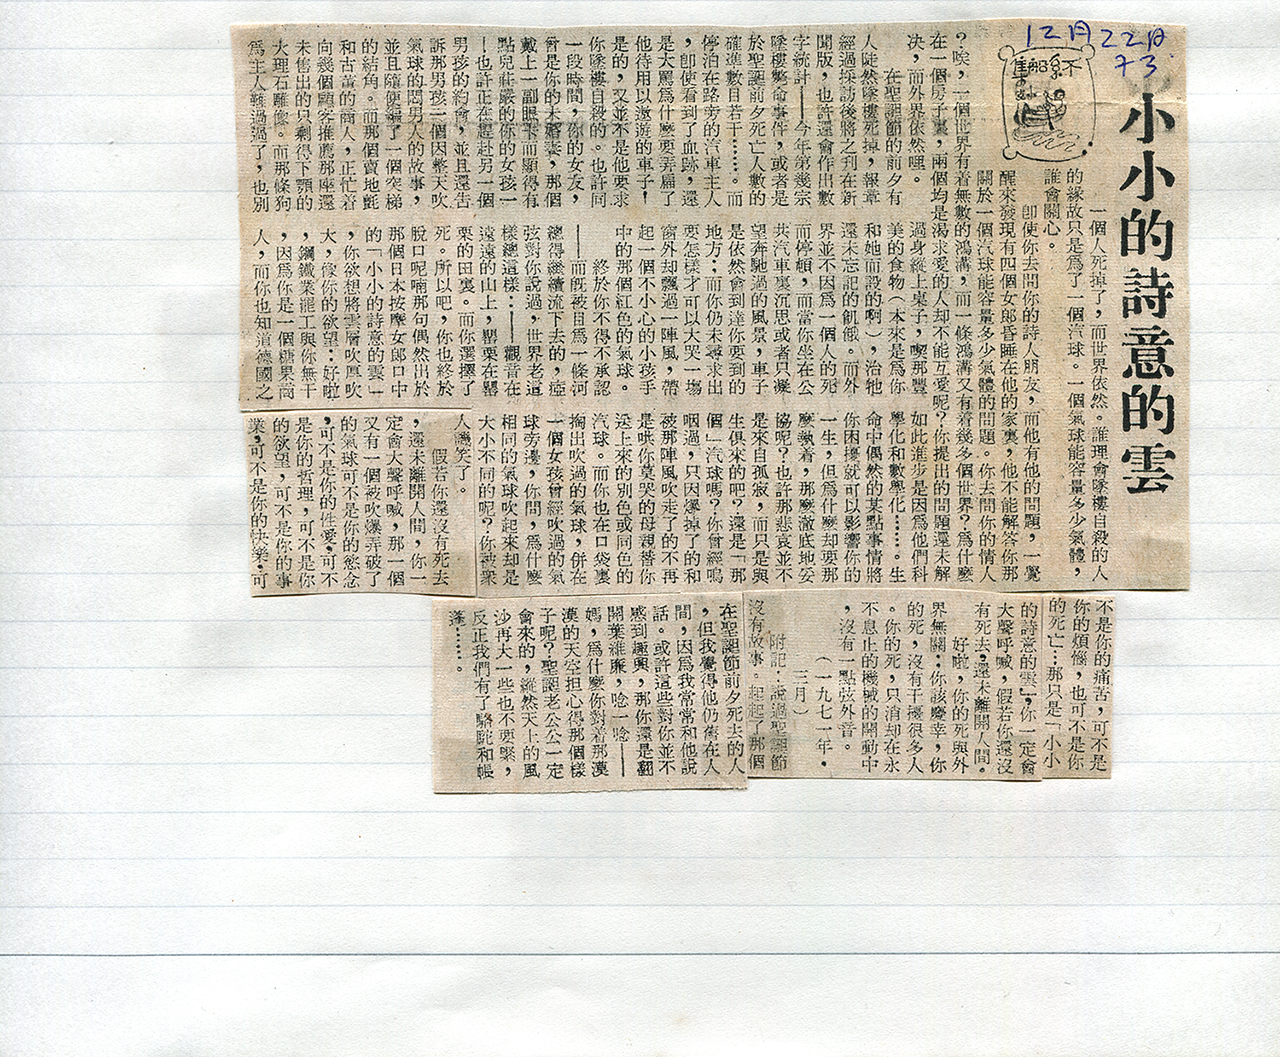 12月22日
73
不繫舟集
小小的詩意的雲
一個人死掉了,而世界依然。誰理會墜樓自殺的人
的緣故只是爲了一個汽球。一個氣球能容量多少氣體,
誰會關心。
卽使你去問你的詩人朋友,而他有他的問題,一覺
醒來發現有四個女郎昏睡在他的家裏,他不能解答你那
關於一個汽球能容量多少氣體的問題。你去問你的情人
?唉,一個世界有着無數的鴻溝,而一條鴻溝又有着幾多個世界?爲什麼
在一個房子裏,兩個均是渴求愛的人却不能互愛呢?你提出的問題還未解
決,而外界依然哩。
在聖誕節的前夕有
人陡然墜樓死掉,報章
經過採訪後將之刊在新
聞版,也許還會作出數
字統計——今年第幾宗
墜樓斃命事件,或者是
於聖誕前夕死亡人數的
確準數目若干……。而
停泊在路旁的汽車主人
,卽使看到了血跡,還
是大罵爲什麼要弄扁了
他待用以遨遊的車子!
是的,又並不是他要求
你墜樓自殺的。也許同
一段時間,你的女友,
曾是你的未婚妻,那個
戴上一副眼卡而顯得有
點兒莊嚴的你的女孩—
—也許正在趕赴另一個
男孩的約會,並且還告
訴那男孩一個因整天吹
氣球的悶男人的故事,
並且隨便編了一個突梯
的結角。而那個賣地氈
和古董的商人,正忙着
向幾個顧客推薦那座還
未售出的只剩得下顎的
大理石雕像。而那條狗
爲主人難過了,也別
過身縱上桌子,喫那豐
美的食物(本來是爲你
和她而設的啊),治牠
還未忘記的飢餓。而外
界並不因爲一個人的死
而停頓,而當你坐在公
共汽車裏沉思或者只凝
望奔馳過的風景,車子
是依然會到達你要到的
地方;而你仍未尋求出
要怎樣才可以大哭一場
窗外却飄過一陣風,帶
起一個不小心的小孩手
中的那個紅色的氣球。
終於你不得不承認
——而旣被目爲一條河
總得繼續流下去的,瘂
弦對你說過,世界老這
樣總這樣:——觀音在
遠遠的山上,罌栗在罌
栗的田裏。而你選擇了
死。所以吧,你也終於
脫口呢喃那句偶然出於
那個日本按摩女郎口中
的「小小的詩意的雲」
,你欲想將雲層吹厚吹
大,像你的欲望;好啦
,鋼鐵業罷工與你無干
,因爲你是一個糖果商
人,而你也知道德國之
如此進步是因爲他們科
學化和數學化……。生
命中偶然的某點事情將
你困擾就可以影響你的
一生,但爲什麼却要那
麼執着,那麼澈底地妥
協呢?也許那悲哀並不
是來自孤寂,而只是與
生俱來的吧?還是「那
個」汽球嗎?你曾經嗚
咽過,只因爆掉了的和
被那陣風吹走了的不再
是哄你莫哭的母親替你
送上來的別色或同色的
汽球。而你也在口袋裏
掏出吹過的氣球,併在
一個女孩曾經吹過的氣
球旁邊,你問,爲什麼
相同的氣球吹起來却是
大小不同的呢?你被衆
人譏笑了。
假若你還沒有死去
,還未離開人間,你一
定會大聲呼喊,那一個
又有一個被吹爆弄破了
的氣球可不是你的慾念
,可不是你的性愛,可不
是你的哲理,可不是你
的欲望,可不是你的事
業,可不是你的快樂,可
不是你的痛苦,可不是
你的煩惱,也可不是你
的死亡…那只是「小小
的詩意的雲」,你一定會
大聲呼喊,假若你還沒
有死去,還未離開人間。
好啦,你的死與外
界無關;你該慶幸,你
的死,沒有干擾很多人
。你的死,只消却在永
不息止的機械的開動中
,沒有一點弦外音。
(一九七一年,
三月)
附記:說過聖誕節
沒有故事。起起了那個
在聖誕節前夕死去的人
,但我覺得他仍舊在人
間,因爲我常常和他說
話。或許這些對你並不
感到趣興,那你還是翻
開葉維廉,唸一唸——
媽,爲什麼你對着那漠
漠的天空担心得那個樣
子呢?聖誕老公公一定
會來的,縱然天上的風
沙再大一些也不要緊,
反正我們有了駱駝和帳
蓬……。